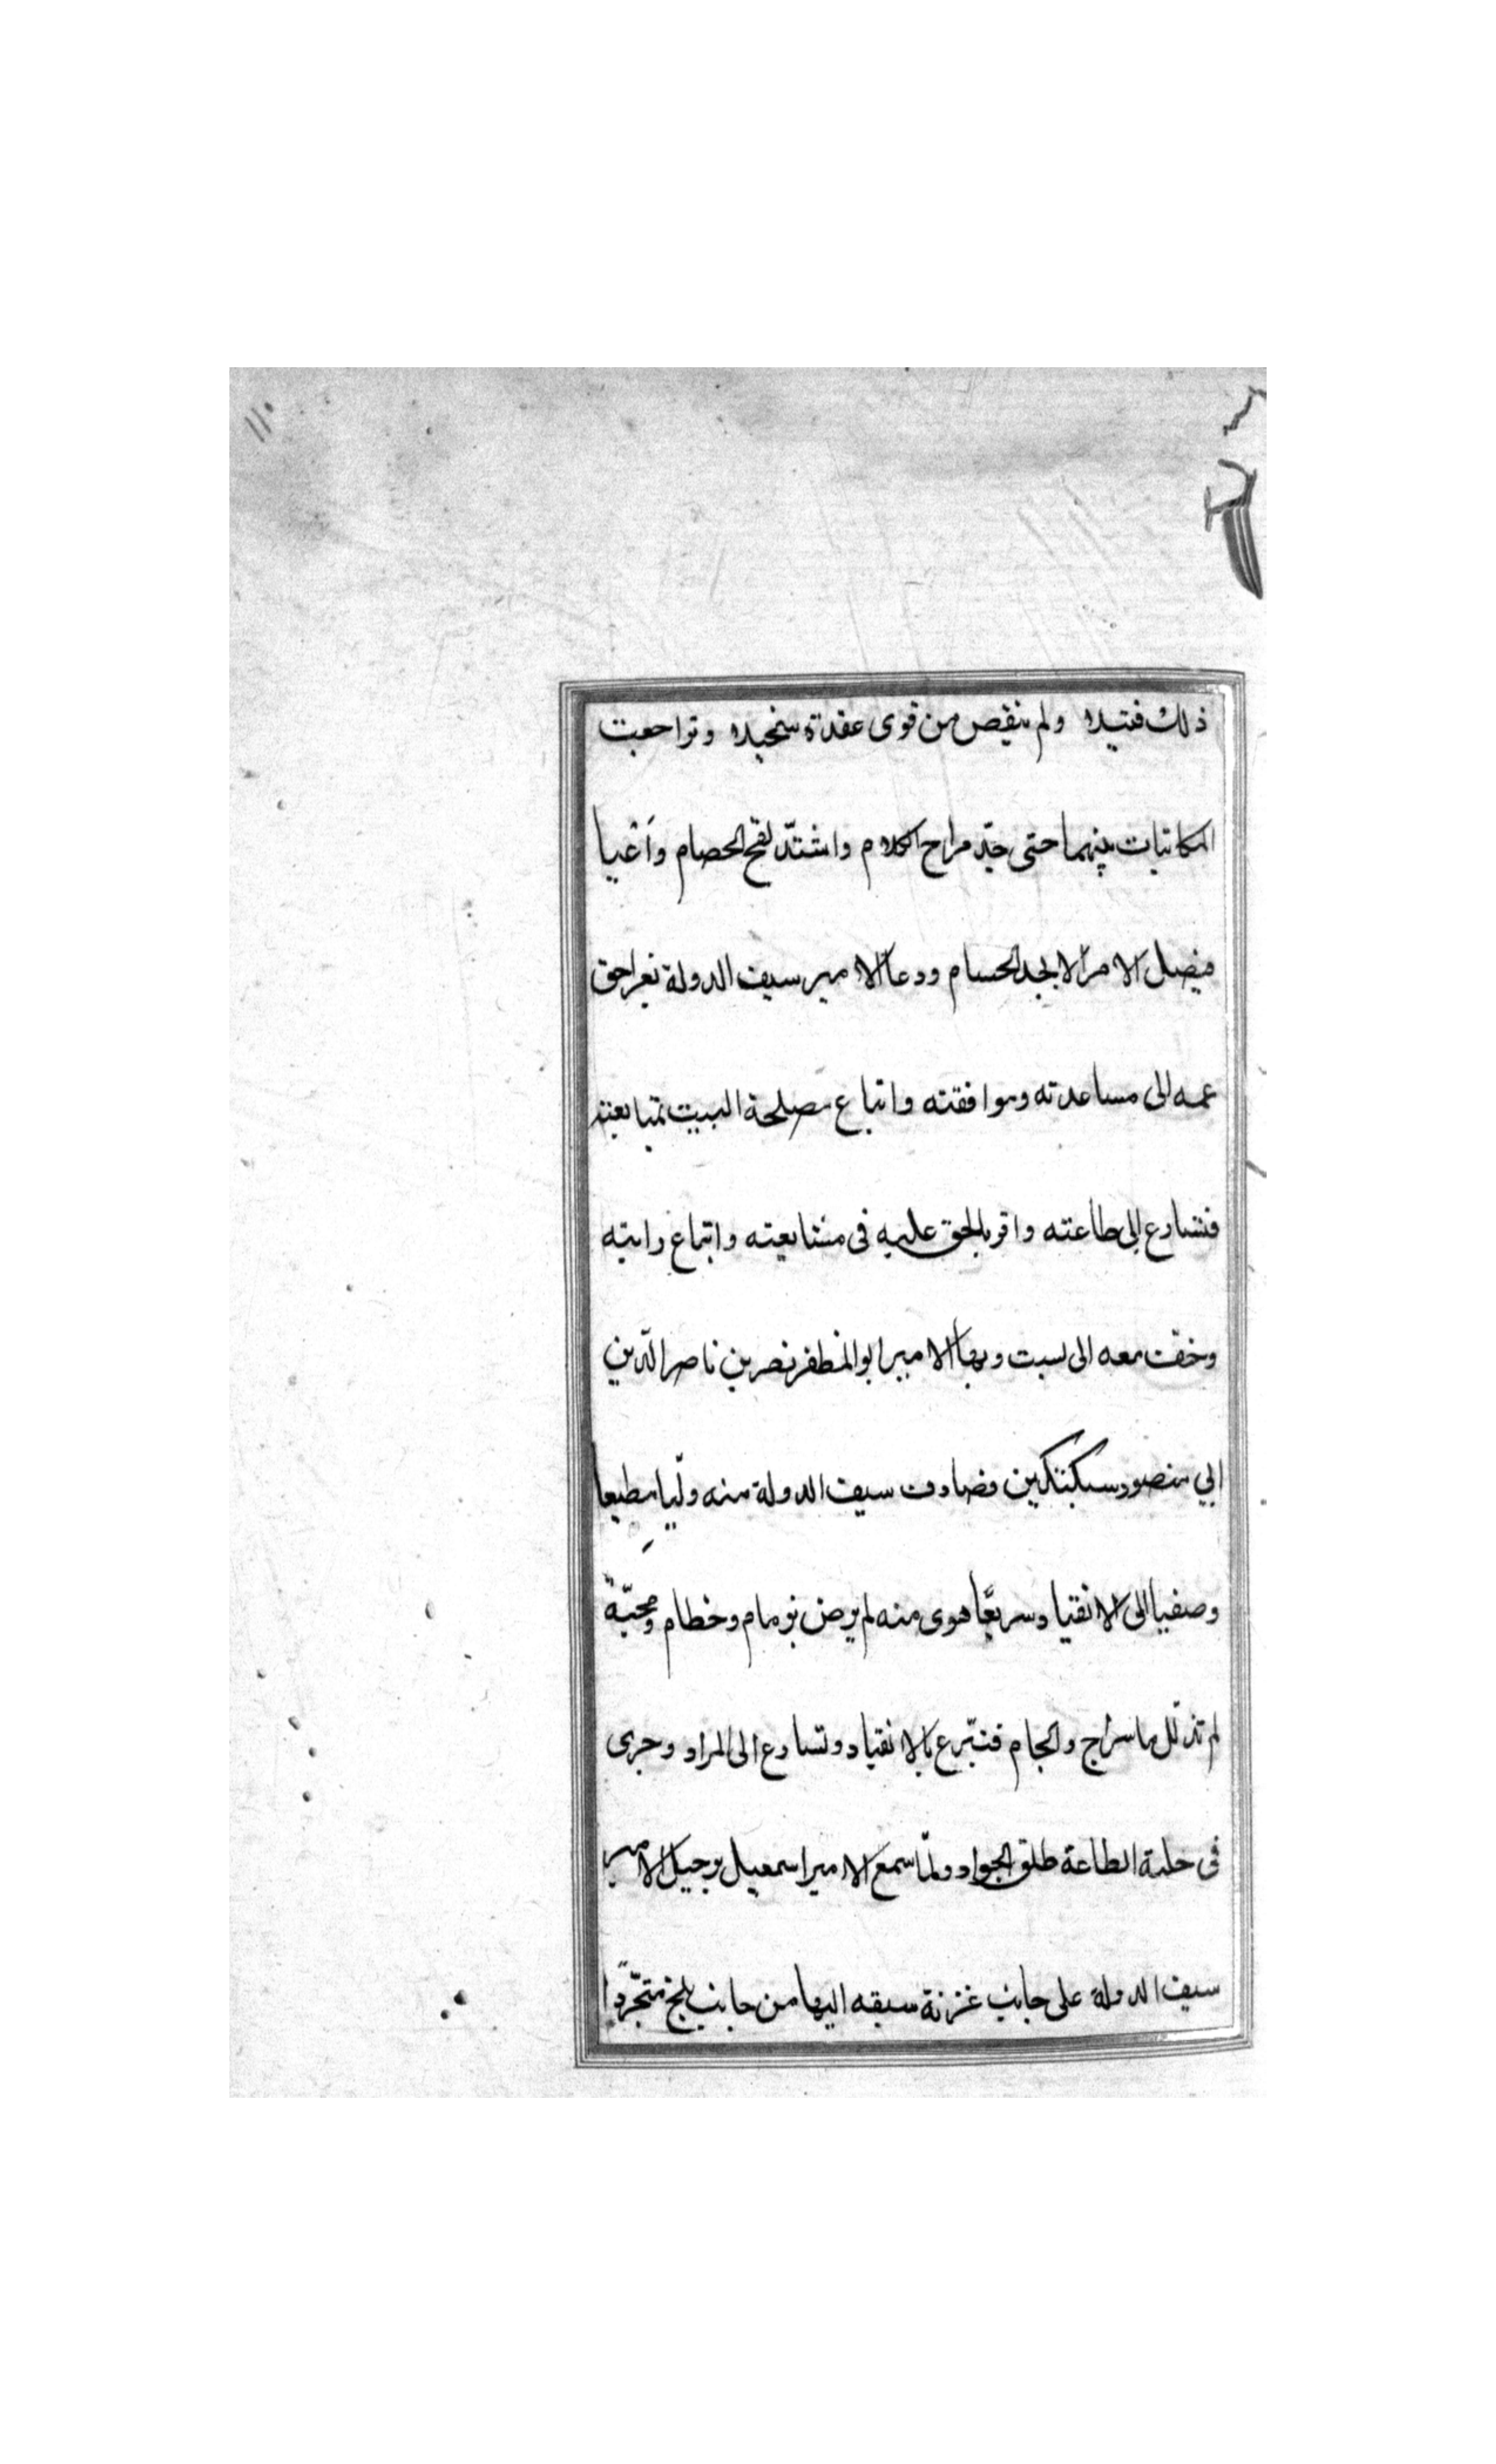 ١١٠
ذلك فتيلا ولم ينقص من قوى عقدته سحيلا وتراجعت
المكاتبات بينهما حتى جدّ مراح الكلام واشتدّ لقح الخصام وأعيا
فيصل الامر الا بحد الحسام ودعا الامير سيف الدولة بغراجق
عمه الى مساعدته وموافقته واتباع مصلحة البيت بمتابعته
فتسارع الى طاعته واقر بالحق عليه فى مشايعته واتباع رايته
وخفّ معه الى بست وبها الامير ابو المظفر نصر بن ناصر الدّين
ابي منصور سبكتكين فصادف سيف الدولة منه وليّا مطيعا
وصفيا الى الانقياد سريعًا هوى منه لم يرض بزمام وخطام ومحبّة
لم تذلّل باسراج والجام فتبّرع بالانقياد وتسارع الى المراد وجرى
فى حلبة الطاعة طلق الجواد ولمّا سمع الامير اسمعيل برحيل الامير
سيف الدولة على جانب غزنة سبقه اليها من جانب بلخ متجّردًا